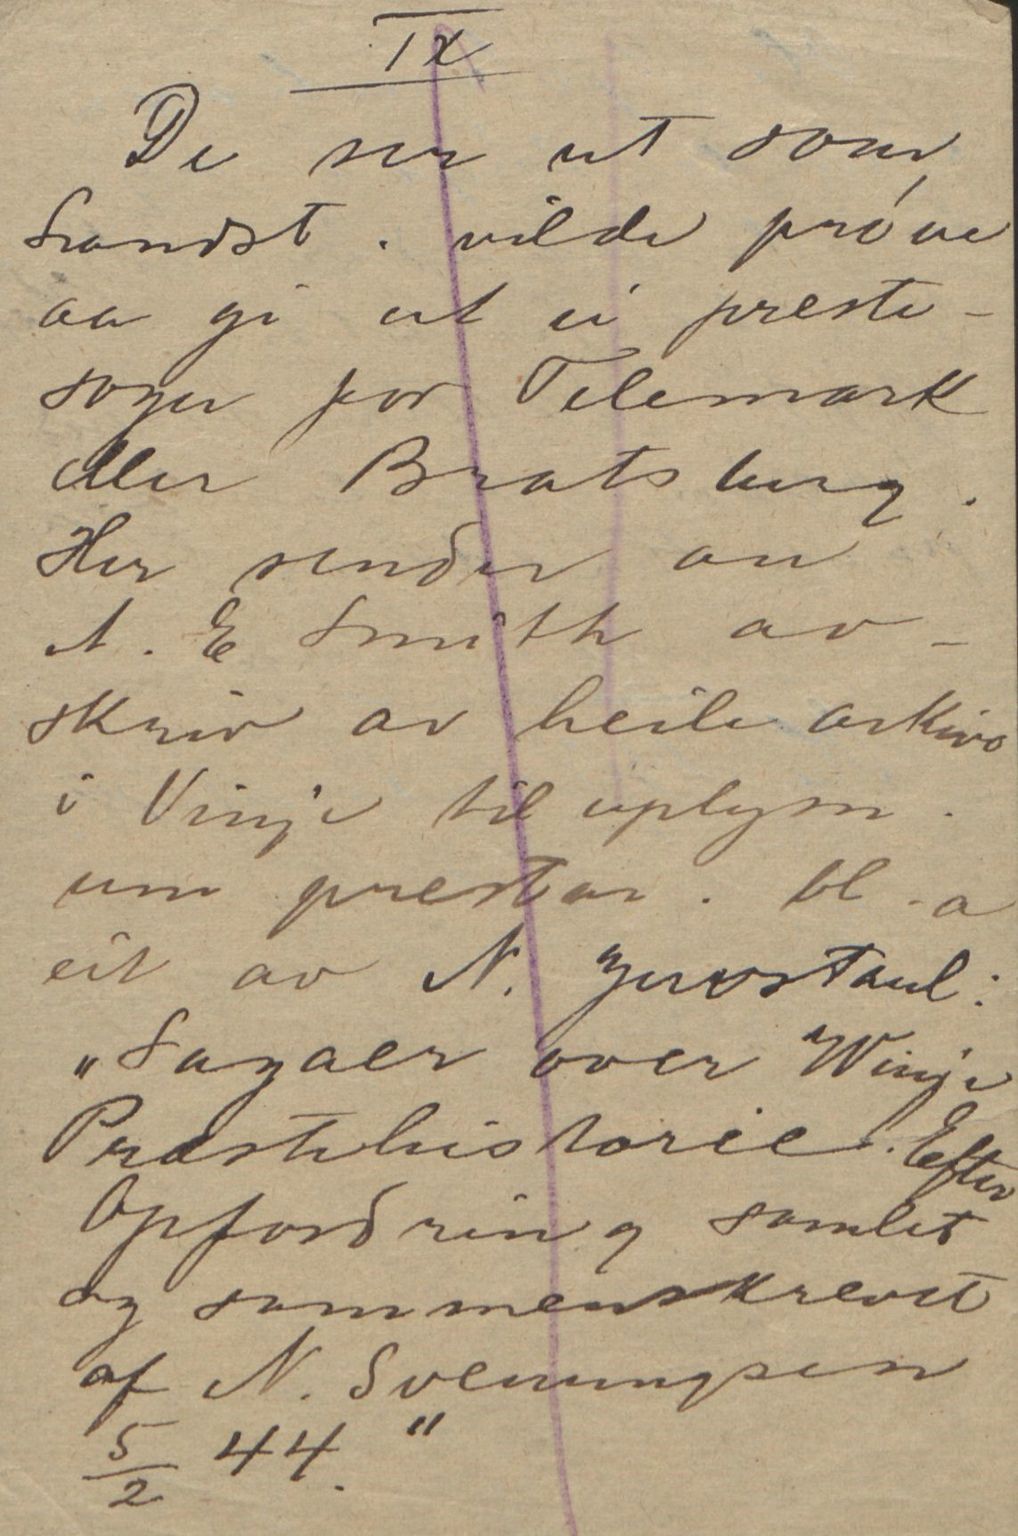 IX
De ser ut som
Landst. vilde próve
aa gi ut ei preste-
soge for Telemark
eller Bratsberg.
Her sender an
A. E Smith av-
skriv av heile arkivo
i Vinje til uplysn.
um prestar. bl. a
eit av N. Juvstaul:
„Sagaer over Winje
Præstehistorie. Efter
Opfordring samlet
og sammenskrevet
af N. Sveinungsen
5/2 44."